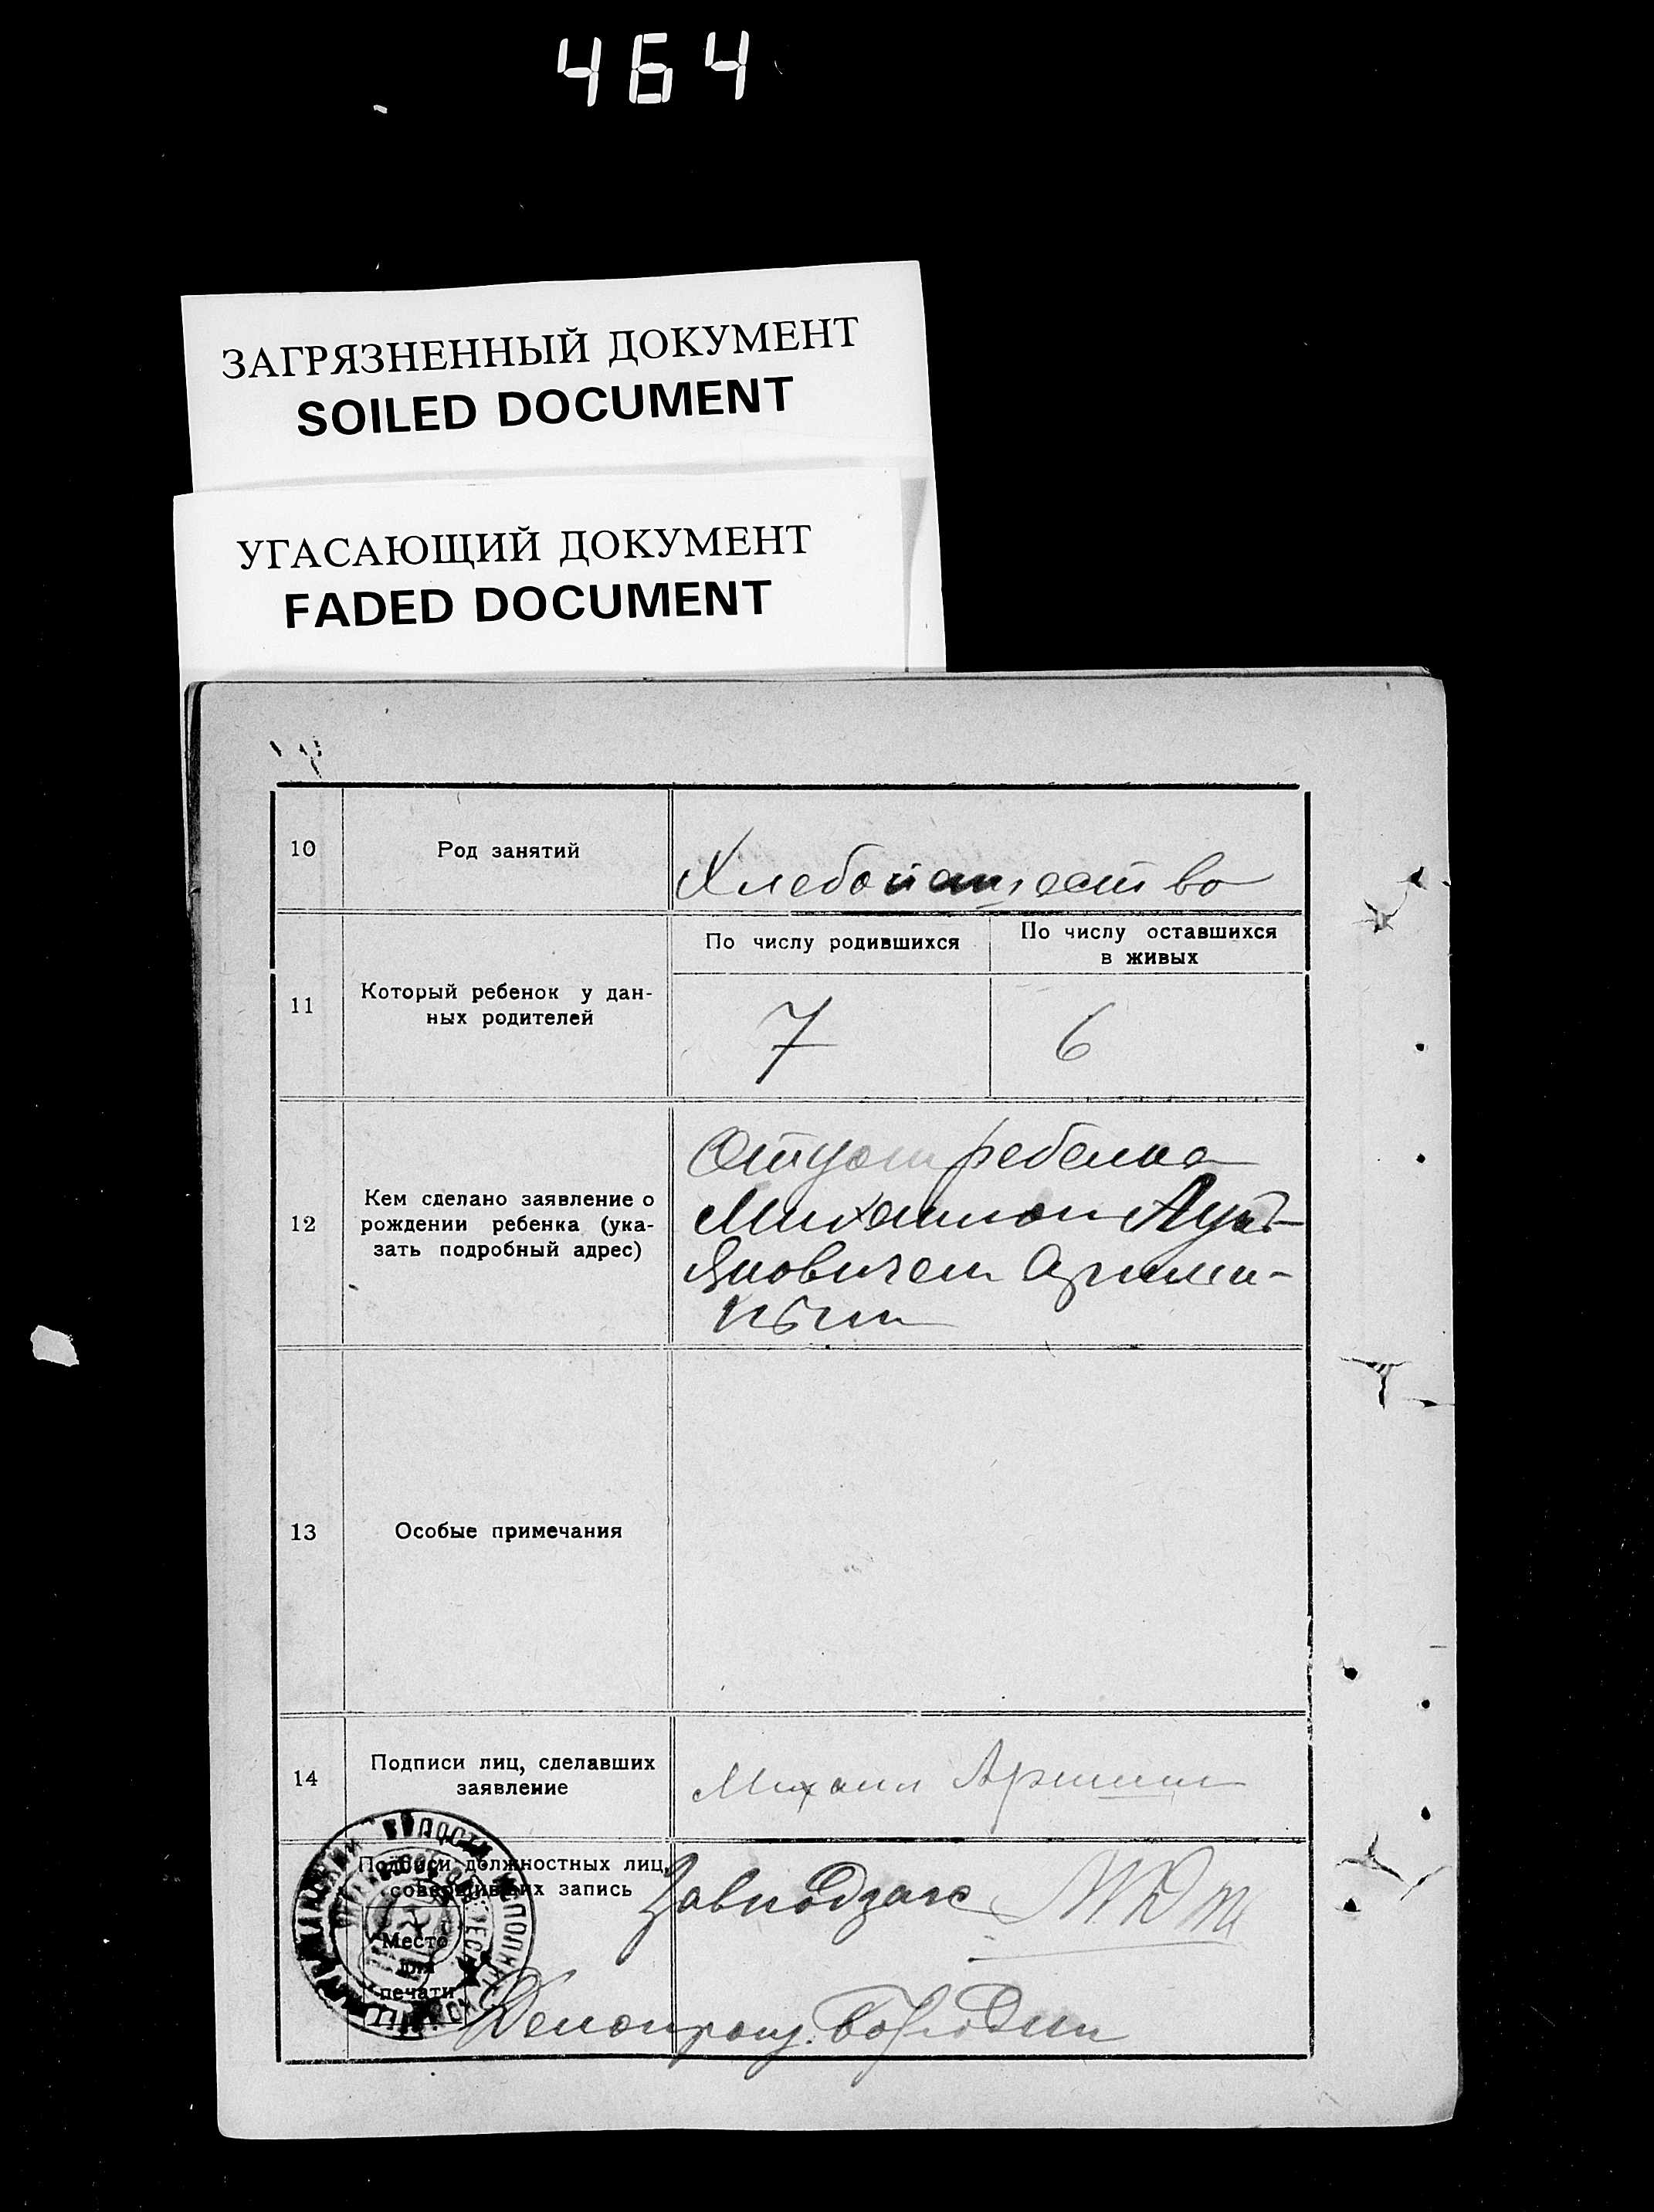 464
ЗАГРЯЗНЕННЫЙ ДОКУМЕНТ
SOILED DOCUMENT
УГАСАЮЩИЙ ДОКУМЕНТ
FADED DOCUMENT
10
Род занятий
Хлебопашество
11
Который ребенок у дан-
ных родителей
По числу родившихся
По числу оставшихся
в живых
7
6
12
Кем сделано заявление о
рождении ребенка (ука-
зать подробный адрес)
Отцом ребенка
Михаилом
яновичем
ным
13
Особые примечания
14
Подписи лиц, сделавших
заявление
Михаил Аршин
Подписи должностных лиц,
совершивших запись
Завподзагс
Место
для
печати
Делопроиз. Бородин